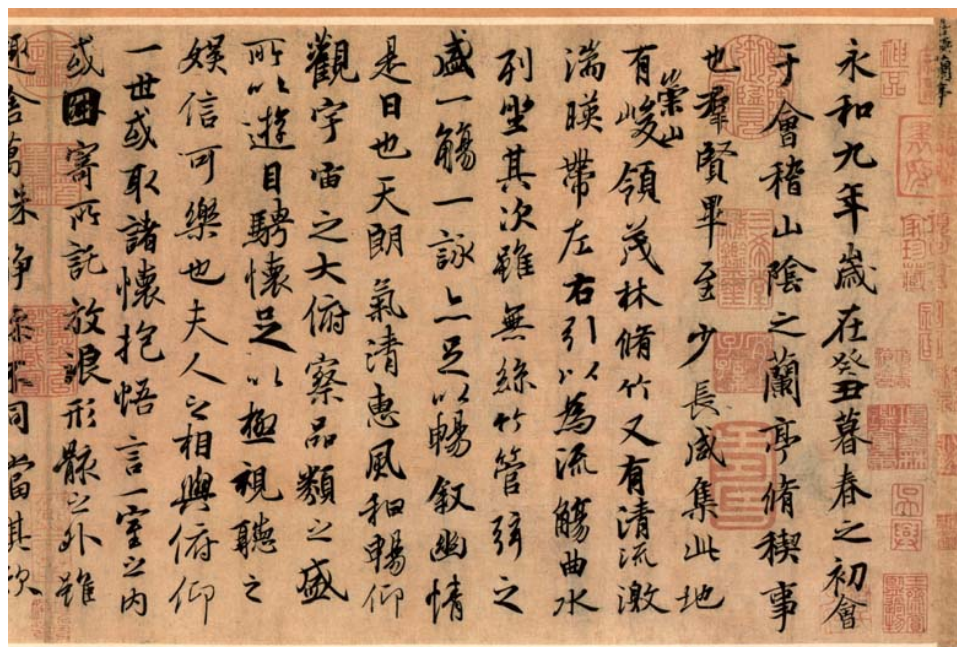 永和九年歲在癸丑暮春之初會
于會稽山陰之蘭亭脩稧事
也羣賢畢至少長咸集此地
有崇山峻領茂林脩竹又有清流激
湍暎帶左右引以為流觴曲水
列坐其次雖無絲竹管弦之
盛一觴一詠亦足以暢敘幽情
是日也天朗氣清惠風和暢仰
觀宇宙之大俯察品類之盛
所以遊目騁懷足以極視聽之
娛信可樂也夫人之相與俯仰
一世或取諸懷抱悟言一室之內
或因寄所託放浪形骸之外雖
趣舍萬殊静躁不同當其欣
神品